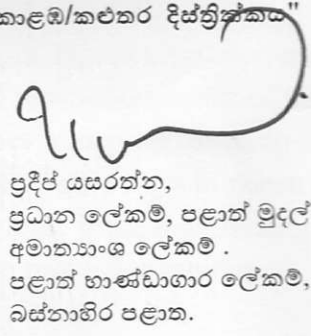 කාළඹ/කළුතර දිස්ත්‍රික්කය"
ප්‍රදීප් යසරත්න,
ප්‍රධාන ලේකම්, පළාත් මුදල්
අමාත්‍යාංශ ලේකම් .
පළාත් භාණ්ඩාගාර ලේකම්,
බස්නාහිර පළාත.